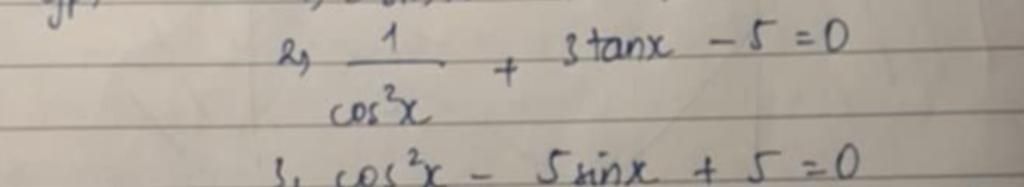 2, 1/cos²x + 3tanx - 5 = 0
3, cos²x - 5sinx + 5 = 0